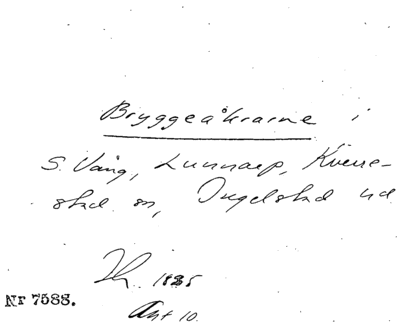 Bryggeåkrarne i
S. Vång, Lunnarp, Kverre-
stad sn, Ingelstad hd
1885
Akt 10.
Nr 7588.